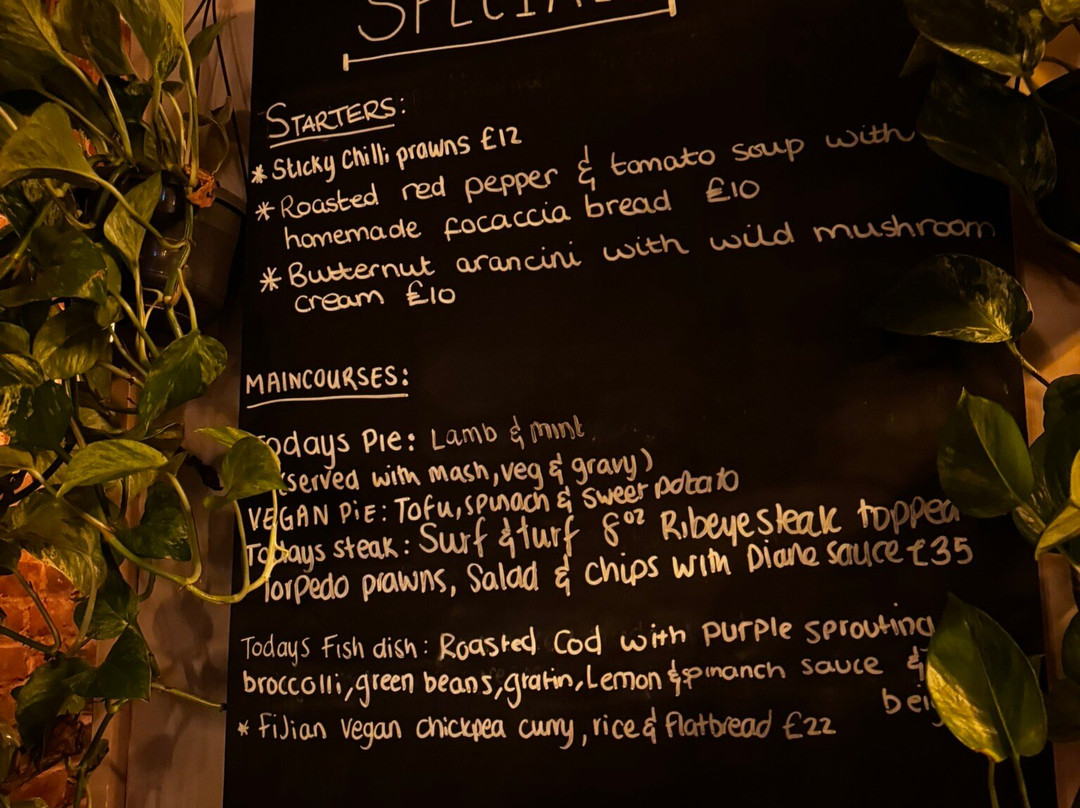 STARTERS:
* Sticky Chilli prawns £12
* Roasted red pepper & tomato soup with
homemade focaccia bread £10
* Butternut arancini with wild mushroom
cream £10
MAINCOURSES:
Todays Pie: Lamb & mint
(served with mash, veg & gravy)
VEGAN PiE: Tofu, spinach & sweet potato
Todays steak: Surf & turf 8oz Ribeye steak topped
Torpedo prawns, Salad & chips with Diane sauce £35
Todays Fish dish: Roasted Cod with purple sprouting
broccolli, green beans, gratin, Lemon & spinanch sauce &
* fijian vegan chickpea curry, rice & flatbread £22